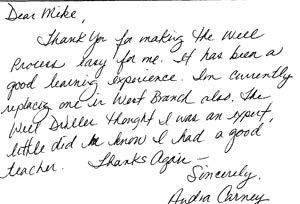 Dear Mike,
Thank You for making the Well
Process easy for me. It has been a
good learning experience. I'm currently
replacing one in West Branch also. The
Well Driller thought I was an expert,
little did he know I had a good
teacher. Thanks Again –
Sincerely,
Andra Carney